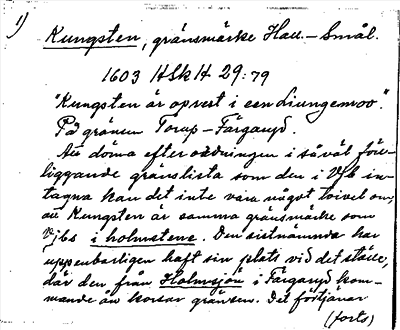 1)
Kungsten, gränsmärke Hall.-Smål.
1603 HSkH 29:79
"Kungsten är oprest i een Liungemoo".
På gränsen Torup-Färgaryd.
Att döma efter ordningen i såväl före-
liggande gränslista som den i Vjb in-
tagna kan det inte vara något tvivel om,
att Kungsten är samma gränsmärke som
Vjbs i holmstene. Den sistnämnda har
uppenbarligen haft sin plats vid det ställe,
där den från Holmsjön i Färgaryd kom-
mande ån korsar gränsen. Det förtjänar
(forts)